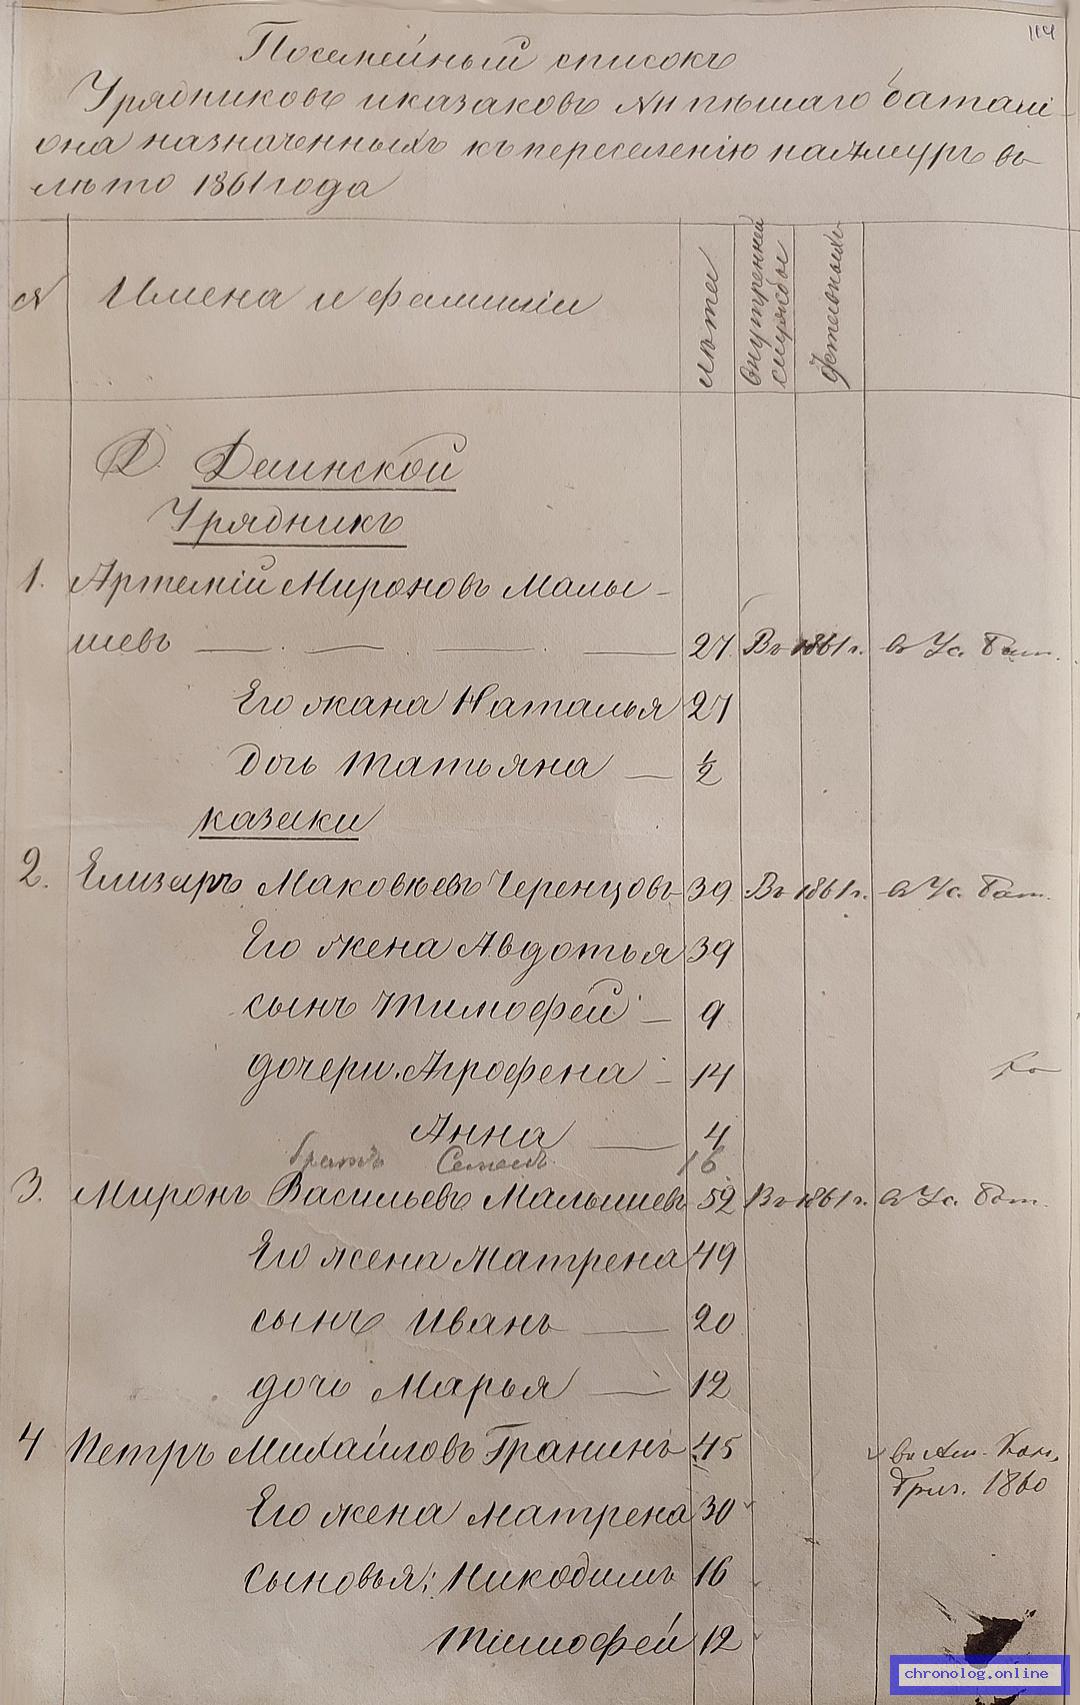 114
Посемейный списокъ
Урядниковъ и казаковъ № 11 пѣшаго батали-
она назначенныхъ къ переселенію на Амуръ въ
лѣто 1861 года
№ Имена и фамиліи Лѣта внутренней службы
Д. Деинской
Урядникъ
1. Артемій Мироновъ Малы-
шевъ — — — — 27 Въ 1861 г. в Ус. Бат.
Его жана Наталья 27
дочь Татьяна — 1/2
казаки
2. Елизаръ Маковѣевъ Черенцовъ 39 Въ 1861 г. в Ус. Бат.
Его жена Авдотья 39
сынъ Тимофей — 9
дочери: Агрофена — 14
Анна — 4
братъ Семенъ 16
3. Миронъ Васильевъ Малышевъ 52 Въ 1861 г. в Ус. Бат.
Его жена Матрена 49
сынъ Иванъ — 20
дочь Марья — 12
4 Петръ Михайловъ Гранинъ 45 въ Ам. Кон.
Бриг. 1860
Его жена Матрена 30
Сыновья: Никодимъ 16
Тимофей 12
chronolog.online